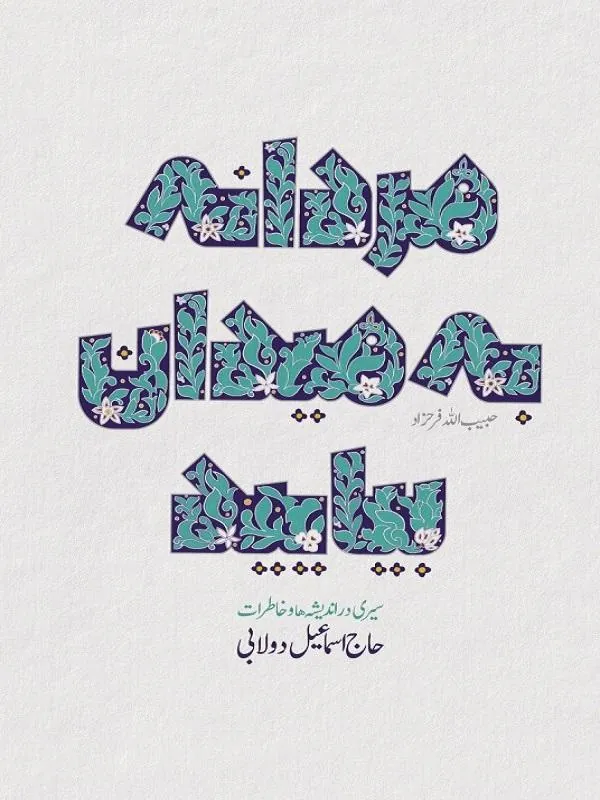 مردانه
به میدان
حبیب الله فرحزاد
بیایید
سیری در اندیشه ها و خاطرات
حاج اسماعیل دولابی